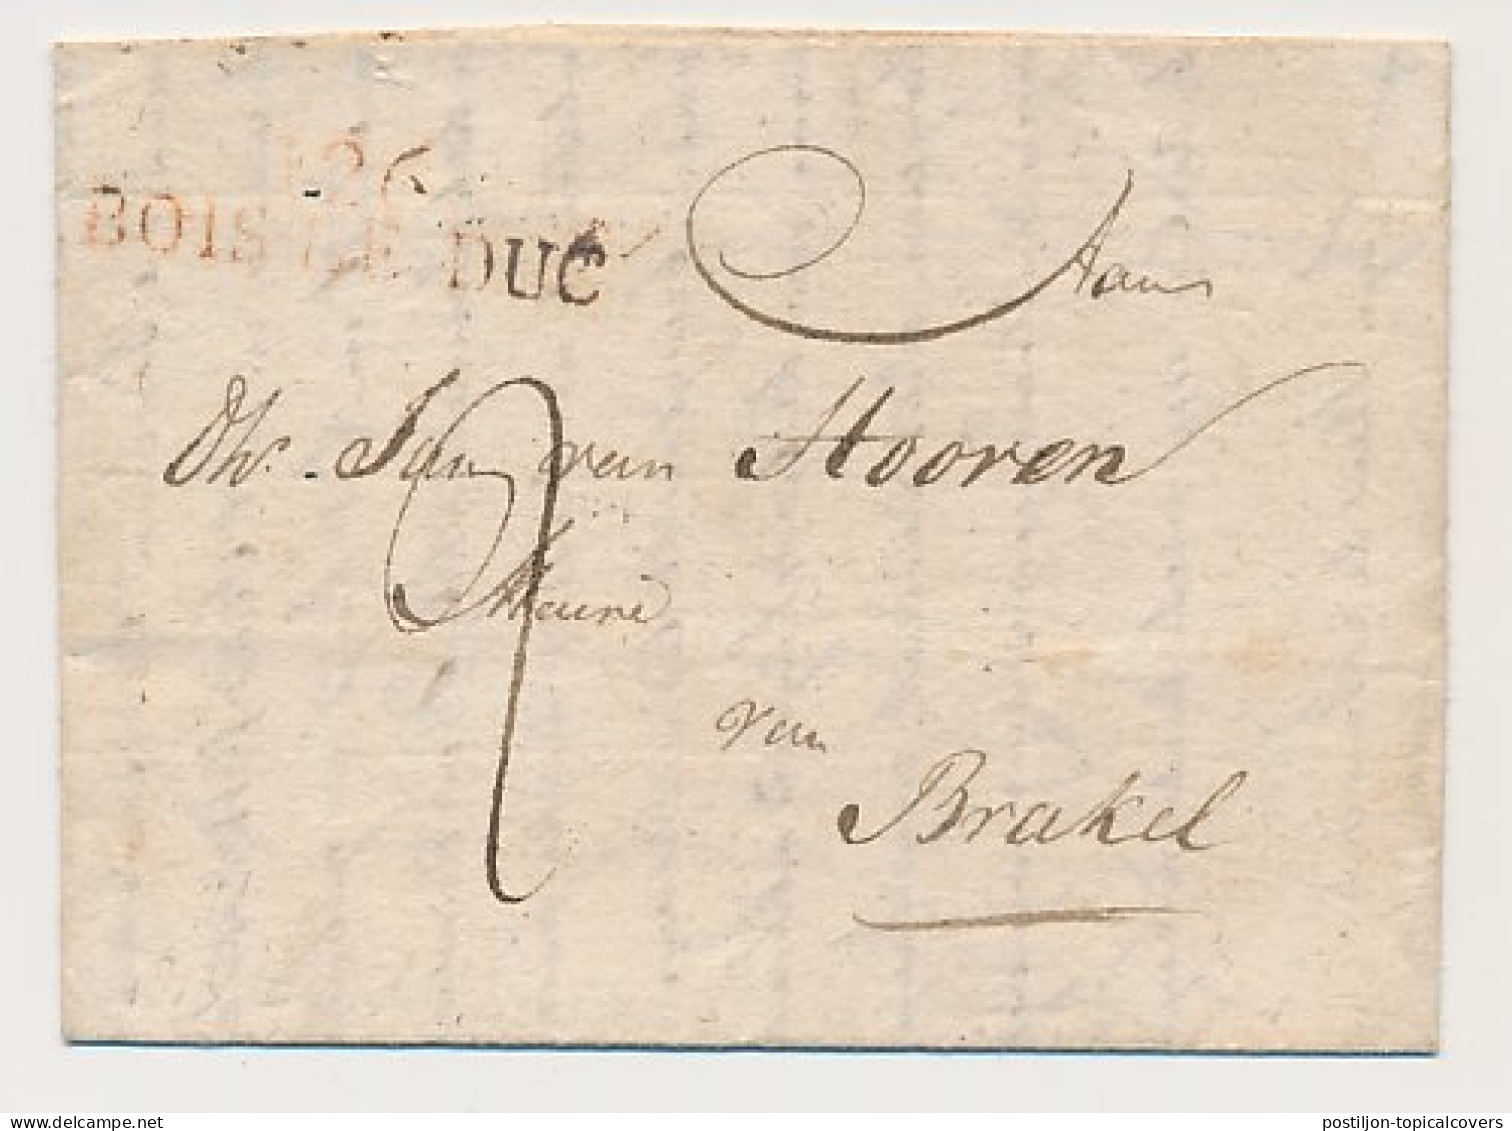 126
BOIS LE DUC
Aan
Dhr. Jan van Hooren
Maire
van
Brakel
postiljon-topicalcovers